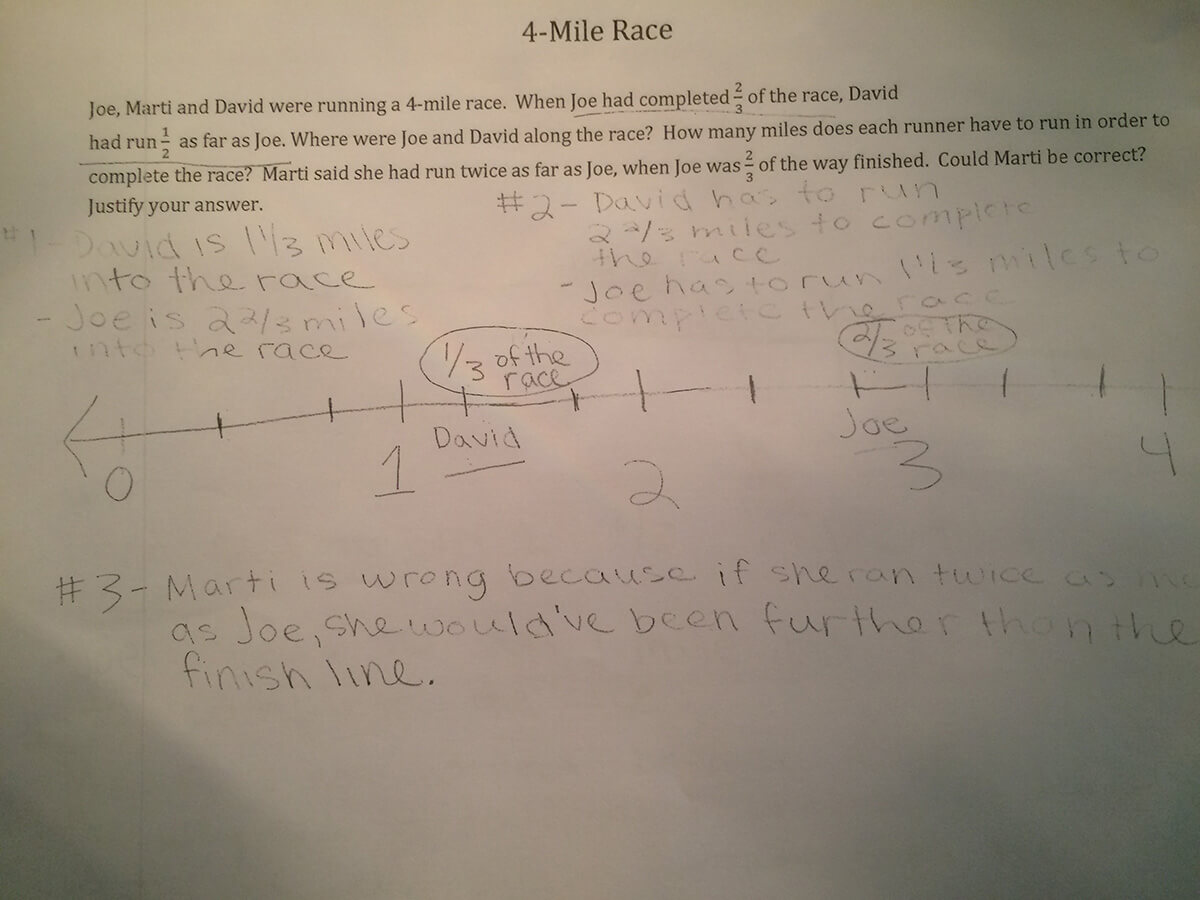 4-Mile Race
Joe, Marti and David were running a 4-mile race. When Joe had completed 2/3 of the race, David
had run 1/2 as far as Joe. Where were Joe and David along the race? How many miles does each runner have to run in order to
complete the race? Marti said she had run twice as far as Joe, when Joe was 2/3 of the way finished. Could Marti be correct?
Justify your answer.
#1- David is 1 1/3 miles
into the race
- Joe is 2 2/3 miles
into the race
#2- David has to run
2 2/3 miles to complete
the race
- Joe has to run 1 1/3 miles to
complete the race
1/3 of the
race
2/3 of the
race
David
Joe
0
1
2
3
4
#3- Marti is wrong because if she ran twice as
as Joe, she would've been further than the
finish line.